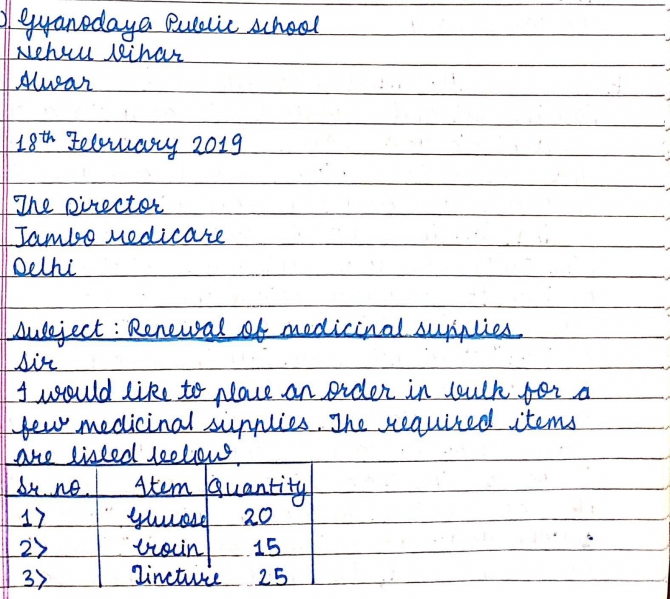 Gyanodaya Public school
Nehru Vihar
Alwar
18th February 2019
The Director
Jambo Medicare
Delhi
Subject : Renewal of medicinal supplies
Sir
I would like to place an order in bulk for a
few medicinal supplies. The required items
are listed below
Sr. no. Item Quantity
1> Glucose 20
2> Crocin 15
3> Tincture 25